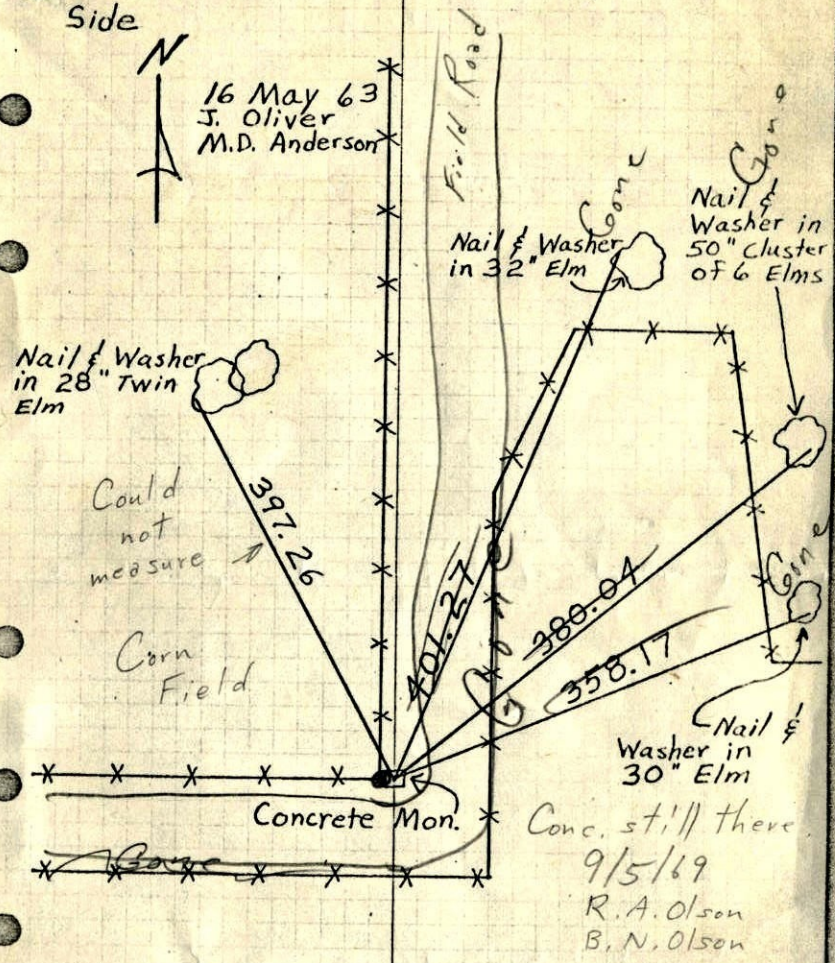 Side
N
16 May 63
J. Oliver
M.D. Anderson
Field Road
Gone
Gone
Nail & Washer
in 32" Elm
Nail &
Washer in
50" Cluster
of 6 Elms
Nail & Washer
in 28" Twin
Elm
397.26
Could
not
measure
Corn
Field
401.27
Gone
380.04
358.17
Gone
Nail &
Washer in
30" Elm
Concrete Mon.
Gone
Conc. still there
9/5/69
R.A. Olson
B.N. Olson